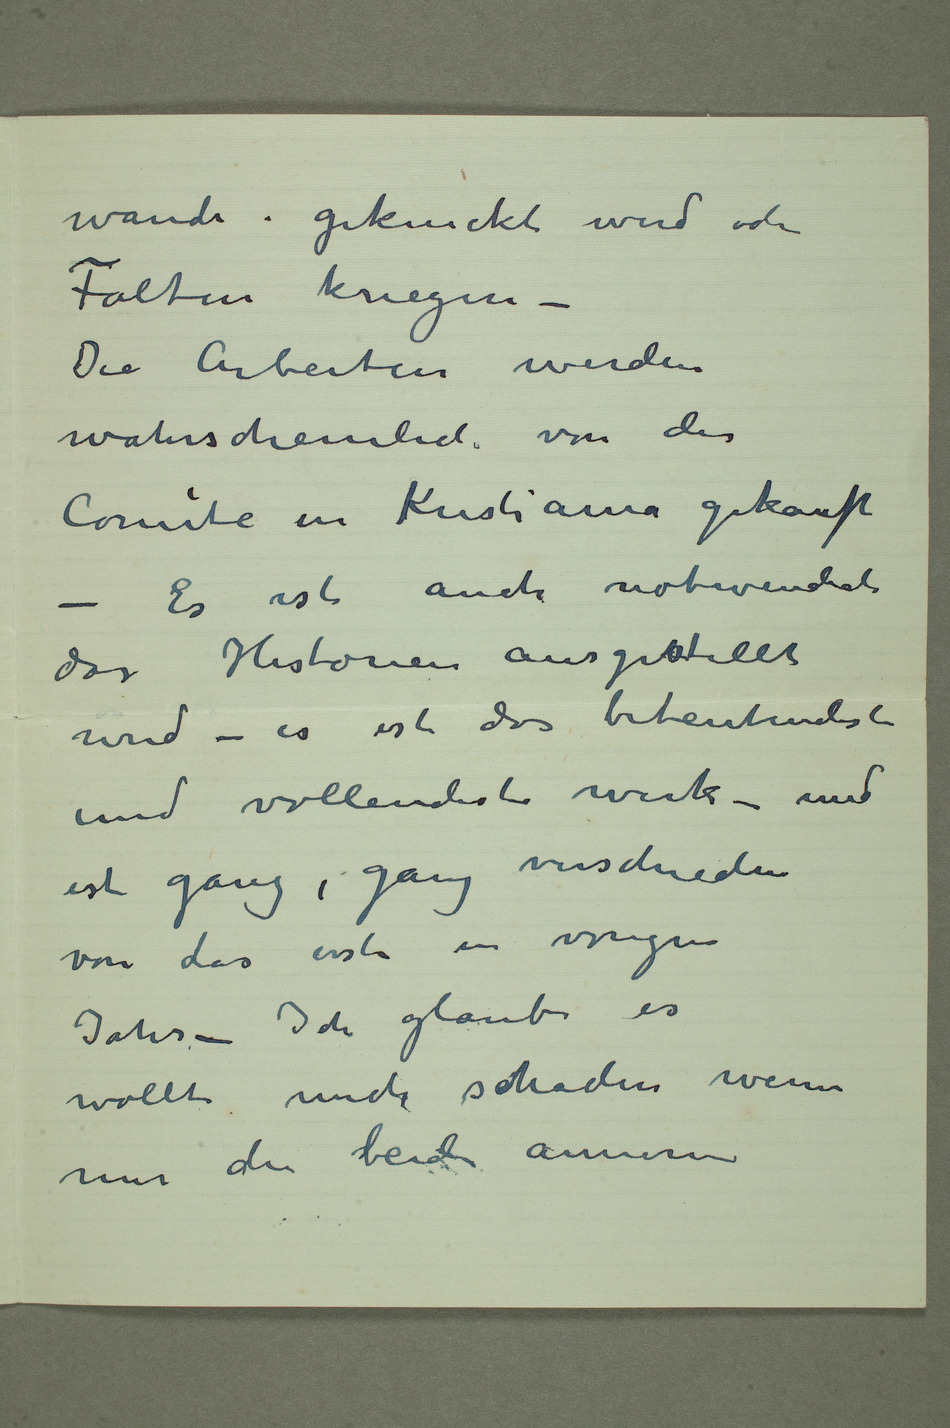 wande geknickt wird oder
Falten kriegen –
Die Arbeiten werden
wahrscheinlich von der
Comite in Kristiania gekauft
– Es ist auch notwendich
das Historien ausgestellt
wird – es ist das beteutendste
und vollendeste werk – und
ist ganz, ganz verschieden
von das erste in vorigen
Jahr – Ich glaube es
wollte mich schaden wenn
nur die beide anneren